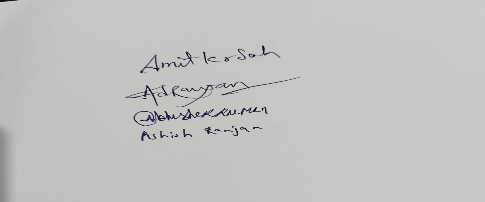 Amit kr Sah
AdRanjan
Abhishek kumar
Ashish Ranjan